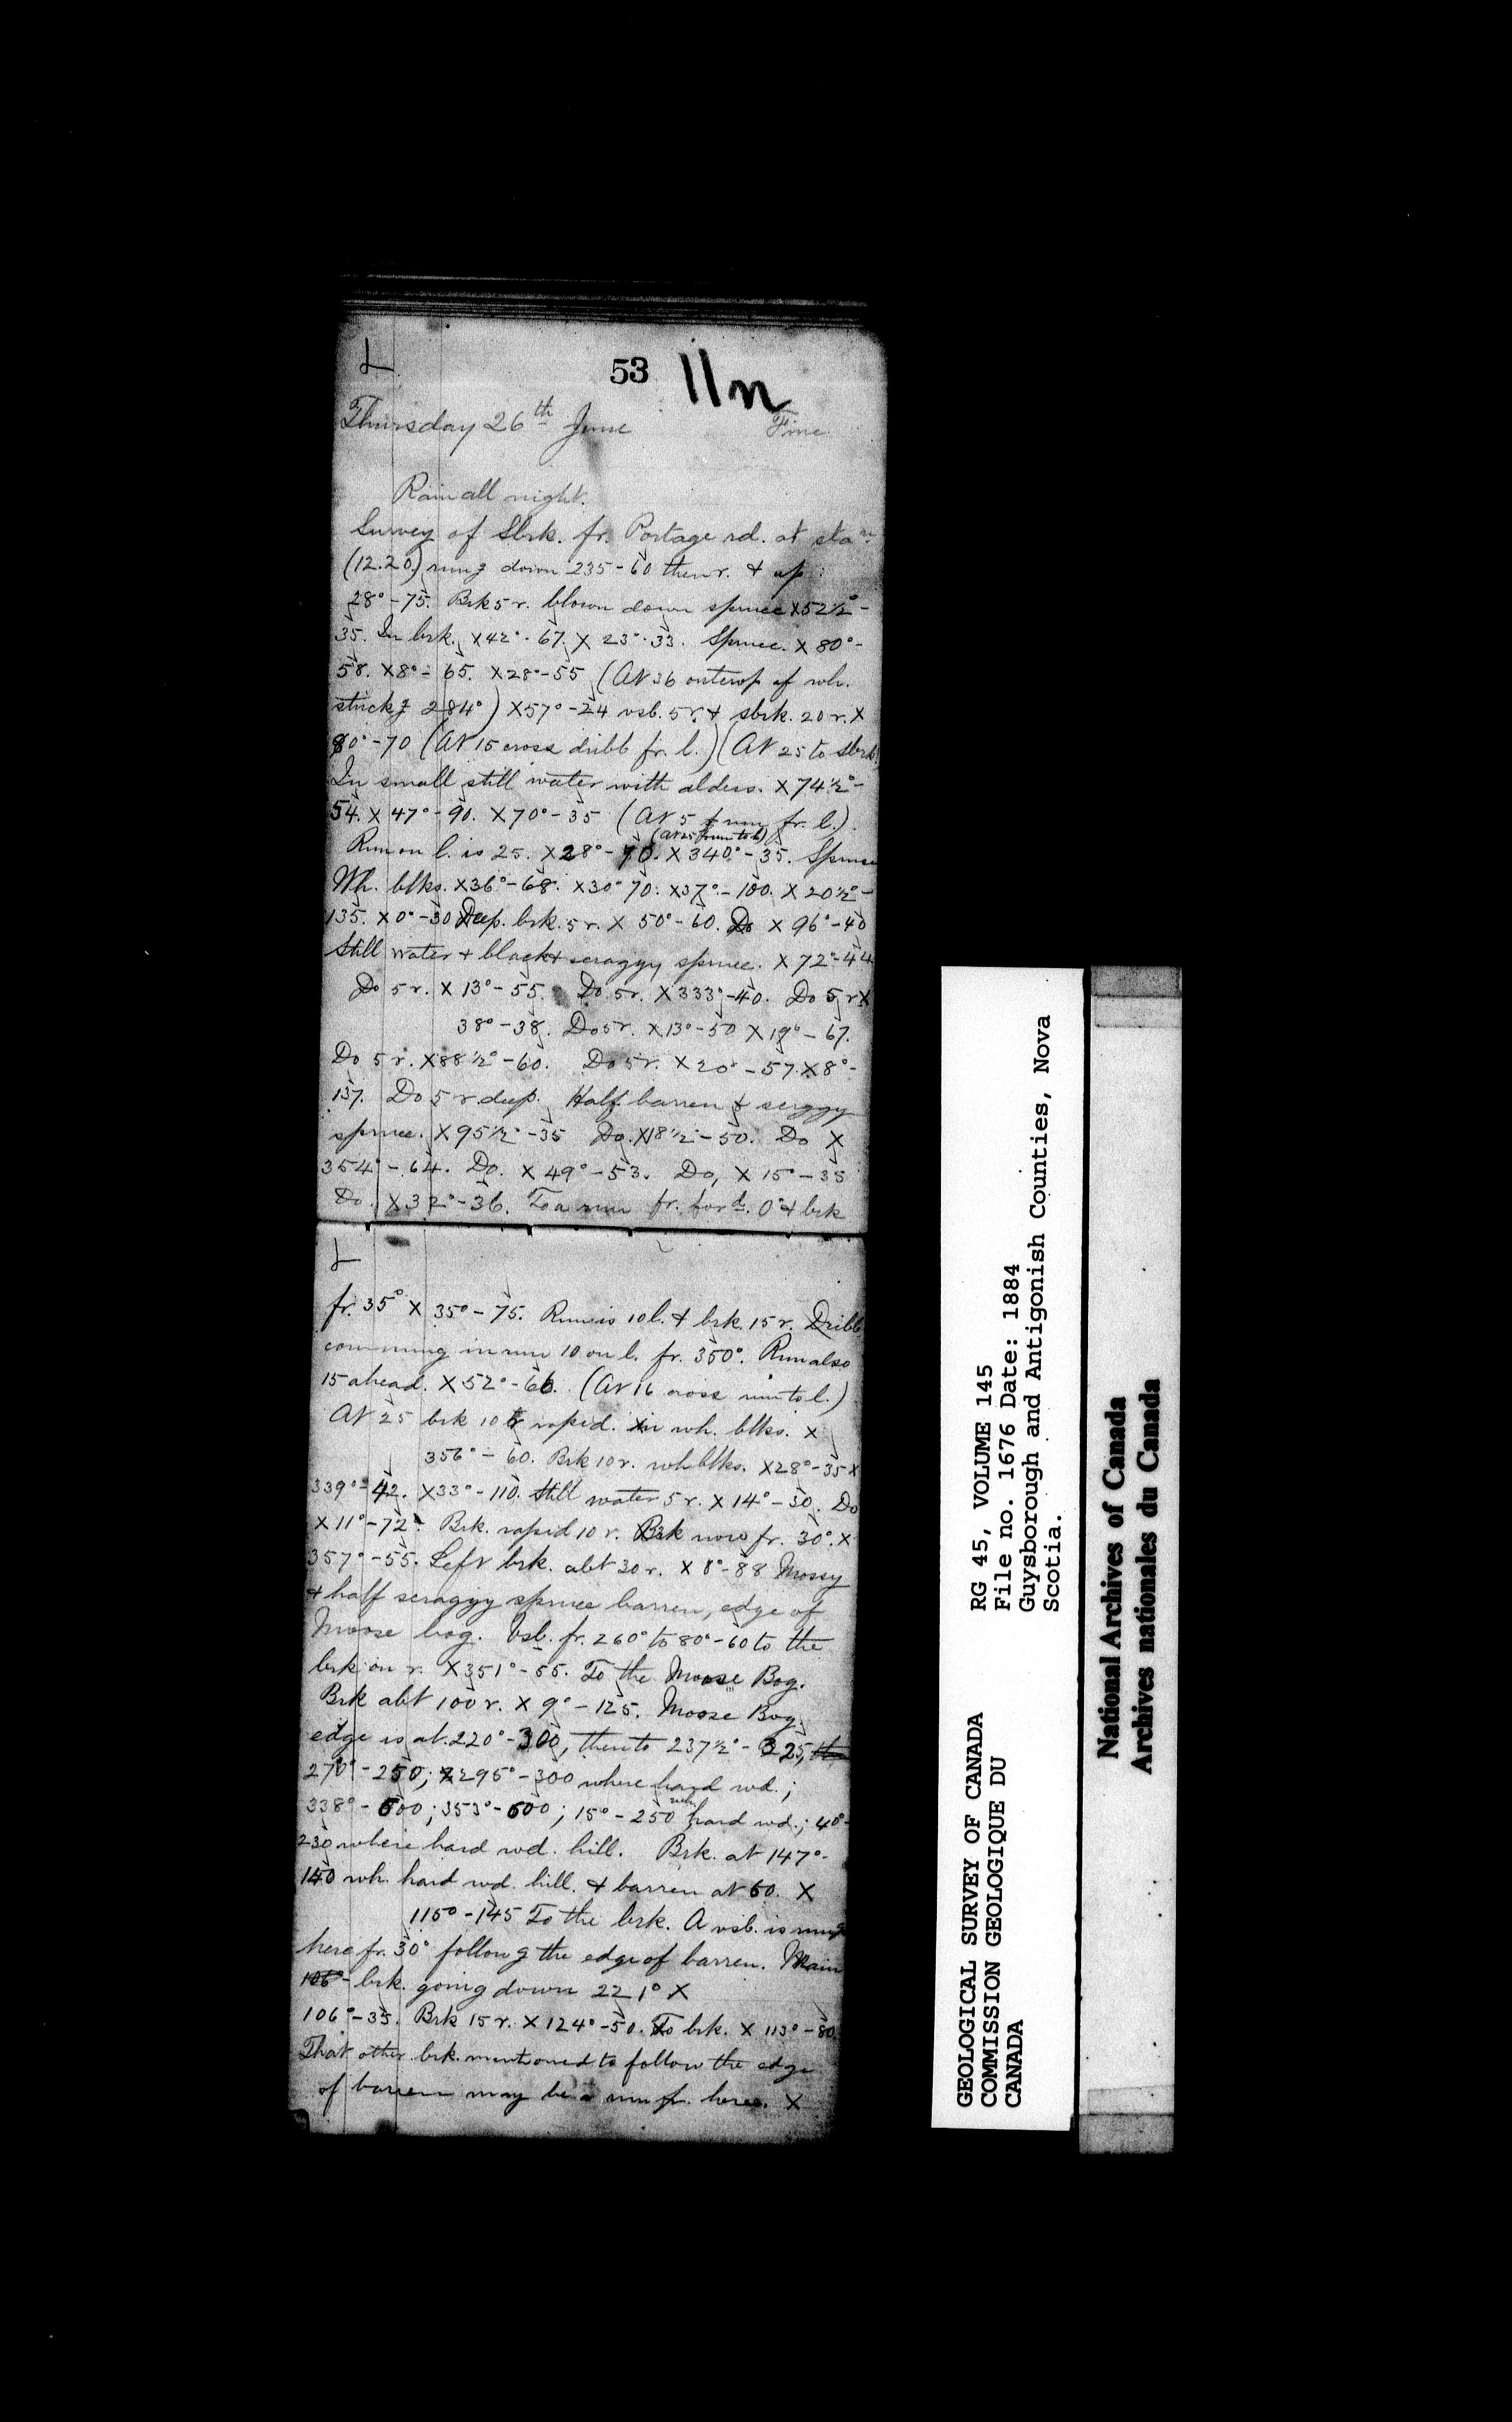 L
53 11n
Thursday 26th June Fine
Rain all night.
Survey of Sbrk. fr. Portage rd. at sta
(12.20) rung down 235-60 then r. & up:
28°-75. Brk 5 r. blown down spruce X 52½°-
35. In brk. X 42°-67. X 23°-33. Spruce. X 80°-
58. X 8°-65. X 28°-55 (At 36 outcrop of wh.
strickg 284°) X 57°-24 vsb. 5 r. & sbrk. 20 r. X
80°-70 (At 15 cross dribb fr. l.) (At 25 to sbrk.)
In small still water with alders. X 74½°-
54. X 47°-90. X 70°-35 (At 5 run fr. l.).
(At 25 from to l.)
Run on l. is 25. X 28°-70. X 340°-35. Spruce
Wh. blks. X 36°-68. X 30° 70. X 37°-100. X 20½°-
135. X 0°-30 Deep. brk. 5 r. X 50°-60. Do X 96°-40
Still water & black & scraggy spruce. X 72°-44
Do 5 r. X 13°-55. Do 5 r. X 333°-40. Do 5 r X
38°-38. Do 5 r. X 13°-50 X 19°-67.
Do 5 r. X 88½°-60. Do 5 r. X 20°-57. X 8°-
137. Do 5 r deep. Half barren & scraggy
spruce. X 95½°-35 Do. X 18½°-50. Do X
354°-64. Do. X 49°-53. Do, X 15°-35
Do. X 32°-36. To a run fr. for d. 0° & brk
L
fr. 35° X 35°-75. Run is 10 l. & brk. 15 r. Dribb
comming in run 10 on l. fr. 350°. Run also
15 ahead. X 52°-66. (At 16 cross run to l.)
At 25 brk 10 r rapid. in wh. blks. X
356°-60. Brk 10 r. wh blks. X 28°-35 X
339°-42. X 33°-110. Still water 5 r. X 14°-30. Do
X 11°-72. Brk. rapid 10 r. Brk now fr. 30°. X
357°-55. Left brk. abt 30 r. X 8°-88 Mossy
& half scraggy spruce barren, edge of
Moose bog. Vsb. fr. 260° to 80°-60 to the
brk on r. X 351°-55. To the Moose Bog.
Brk abt 100 r. X 9°-125. Moose Bog.
edge is at 220°-300, then to 237½°-325,
270°-250; 295°-300 where hard wd.;
338°-600; 353°-600; 15°-250 wh. hard wd.; 40°-
230 where hard wd. hill. Brk. at 147°-
140 wh. hard wd. hill. & barren at 60. X
115°-145 To the brk. A vsb. is rung
here fr. 30° followg the edge of barren. Main
106°- brk. going down 221° X
106°-35. Brk 15 r. X 124°-50. To brk. X 113°-80.
That other brk. mentioned to follow the edge
of barren may be a run fr. here. X
GEOLOGICAL SURVEY OF CANADA
COMMISSION GEOLOGIQUE DU
CANADA
RG 45, VOLUME 145
File no. 1676 Date: 1884
Guysborough and Antigonish Counties, Nova
Scotia.
National Archives of Canada
Archives nationales du Canada